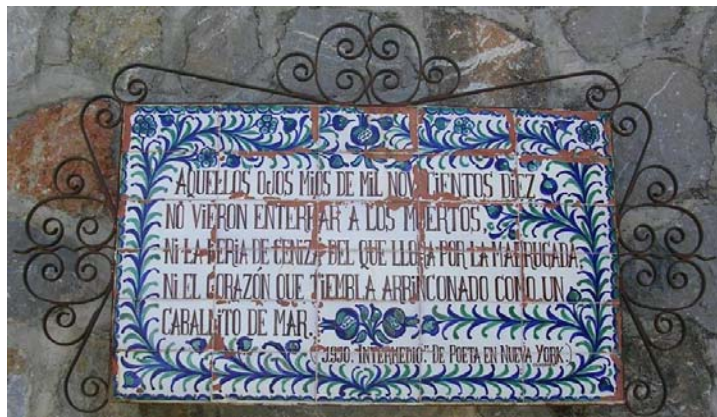 AQUELLOS OJOS MIOS DE MIL NOVECIENTOS DIEZ
NO VIERON ENTERRAR A LOS MUERTOS,
NI LA FERIA DE CENIZA DEL QUE LLORA POR LA MADRUGADA,
NI EL CORAZÓN QUE TIEMBLA ARRINCONADO COMO UN
CABALLITO DE MAR.
("1910. INTERMEDIO." DE POETA EN NUEVA YORK.)